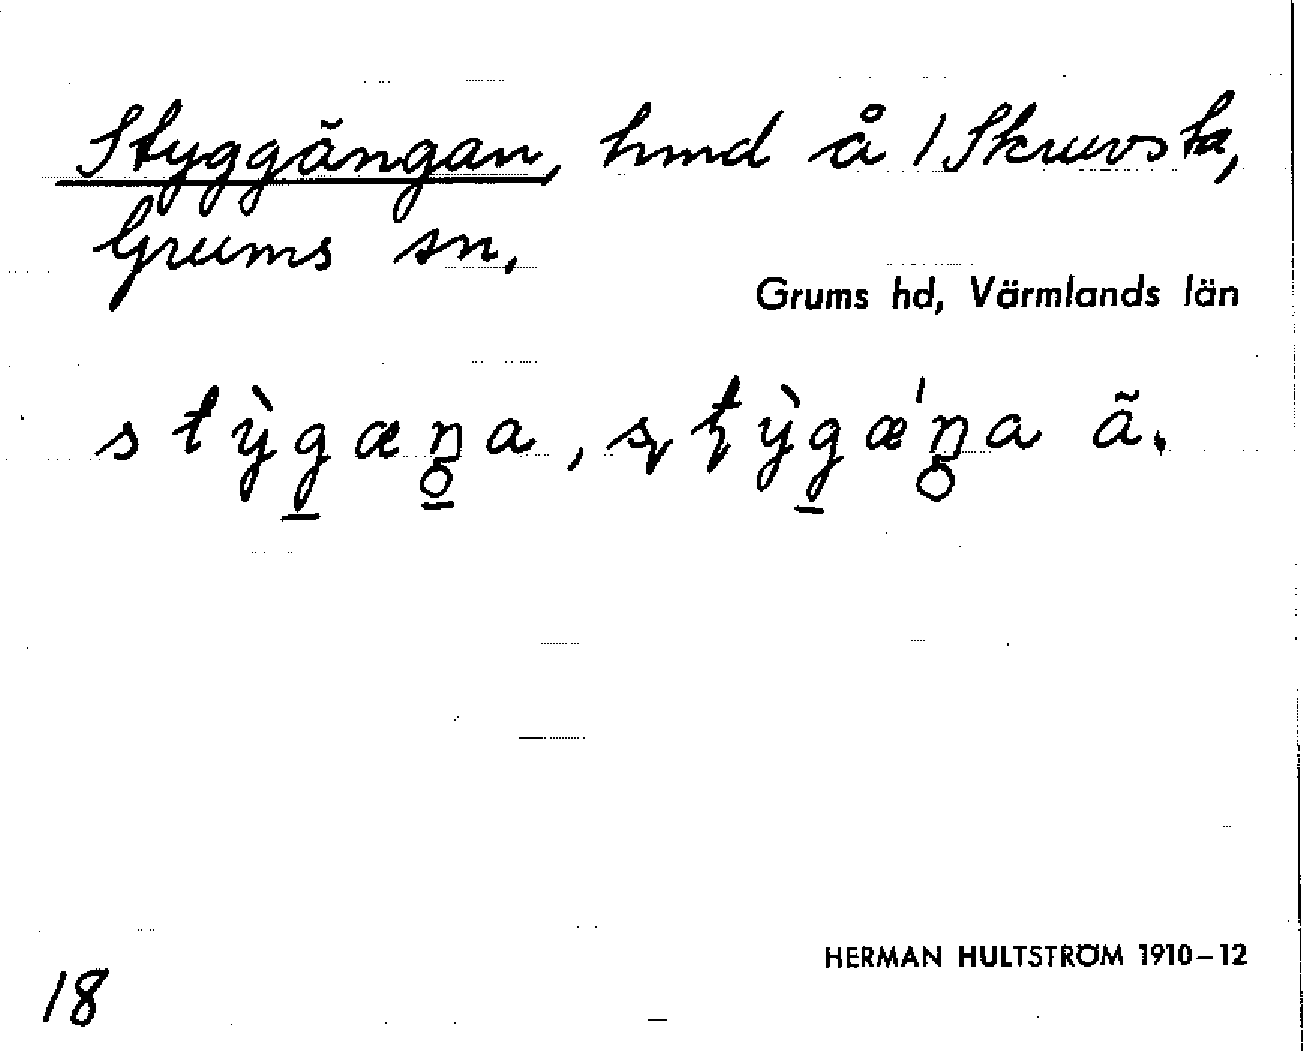 Styggängan, hmd å 1 Skruvsta,
Grums sn.
Grums hd, Värmlands län
stỳgæŋa, stỳgæ̍ŋa ã.
HERMAN HULTSTRÖM 1910-12
18